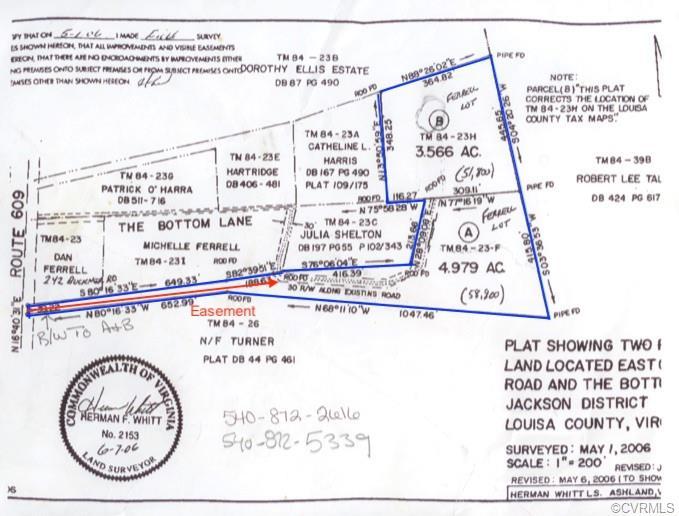 IFY THAT ON 5-1-06 I MADE Field SURVEY
ES SHOWN HEREON, THAT ALL IMPROVEMENTS AND VISIBLE EASEMENTS
EREON, THAT THERE ARE NO ENCROACHMENTS BY IMPROVEMENTS EITHER
NG PREMISES ONTO SUBJECT PREMISES OR FROM SUBJECT PREMISES ONTO
MISES OTHER THAN SHOWN HEREON
TM 84 - 23B
DOROTHY ELLIS ESTATE
DB 87 PG 490
N88°26'02"E
364.82
PIPE FD
ROD FD
NOTE:
PARCEL(B) "THIS PLAT
CORRECTS THE LOCATION OF
TM 84-23H ON THE LOUISA
COUNTY TAX MAPS."
FERRELL
LOT
B
TM 84-23H
3.566 AC.
(51,800)
N13°50'59"E
348.25
445.65
S04°20'26"W
TM 84-23A
CATHELINE L.
HARRIS
DB 167 PG 490
PLAT 109/175
TM 84-23E
HARTRIDGE
DB 406-481
TM 84-23G
PATRICK O' HARRA
DB 511-716
TM 84-39B
ROBERT LEE TAL
DB 424 PG 617
ROD FD
116.27
ROD FD
309.11
PIPE FD
N75°58'28"W
N77°16'19"W
ROUTE 609
THE BOTTOM LANE
30'
TM 84-23C
JULIA SHELTON
DB 197 PG 55 P 102/343
213.68
N28°08'08"E
FERRELL
LOT
A
TM 84-23-F
4.979 AC.
(58,900)
415.80'
S03°36'53"W
TM 84-23
DAN
FERRELL
MICHELLE FERRELL
TM 84-23I
ROD FD
S82°39'51"E
S76°06'04"E
S80°16'33"E
649.33'
188.6
ROD FD
416.39
30 R/W ALONG EXISTING ROAD
N18°40'31"E
N80°16'33"W
652.99'
Easement
N68°11'10"W
1047.46'
PIPE FD
R/W TO A+B
TM 84 - 26
N/F TURNER
PLAT DB 44 PG 461
COMMONWEALTH OF VIRGINIA
HERMAN F. WHITT
No. 2153
6-7-06
LAND SURVEYOR
540-872-2616
540-872-5339
PLAT SHOWING TWO
LAND LOCATED EAST
ROAD AND THE BOTT
JACKSON DISTRICT
LOUISA COUNTY, VIR
SURVEYED: MAY 1, 2006
SCALE: 1"= 200' REVISED: J
REVISED: MAY 6, 2006 (TO SHOW
HERMAN WHITT L.S. ASHLAND, V
06
©CVRMLS